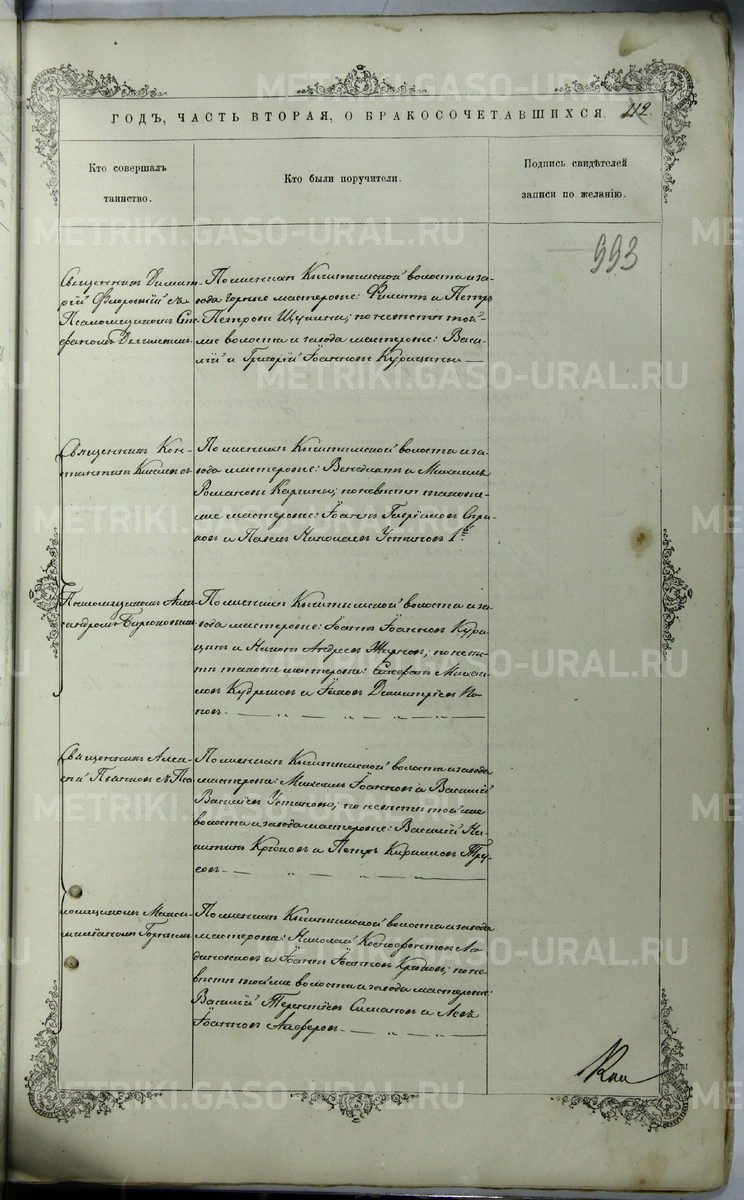 METRIKI.GASO-URAL.RU
ГОДЪ, ЧАСТЬ ВТОРАЯ, О БРАКОСОЧЕТАВШИХСЯ.
112.
Кто совершалъ
таинство.
Кто были поручители.
Подпись свидѣтелей
записи по желанію.
993
Священникъ Димит-
рій съ
Псаломщикомъ Сте-
фаномъ
По женихѣ Кыштымской волости и за-
вода горные мастеровые: Филиппъ и Петръ
Петровы Щукины; по невѣстѣ той-
же волости и завода мастеровые: Васи-
лій и Григорій Іоанновы Курицыны
Священникъ Кон-
стантинъ Киселевъ
По женихѣ Кыштымской волости и за-
вода мастеровые: Венедиктъ и Михаилъ
Романовы Каргины; по невѣстѣ таковы-
же мастеровые: Іоаннъ Гавріиловъ
и Павелъ Николаевъ Устиновъ 1й
Псаломщикомъ Алек-
сандромъ Бирюковымъ
По женихѣ Кыштымской волости и за-
вода мастеровые: Іоаннъ Іоанновъ Кури-
цынъ и Никонъ Андреевъ; по невѣ-
стѣ таковые мастеровые: Стефанъ Михаи-
ловъ и Іаковъ Димитріевъ По-
повъ
Священникъ Алек-
сѣй съ Пса
По женихѣ Кыштымской волости и завода
мастеровые: Михаилъ Іоанновъ и Василій
Васильевъ Устиновы; по невѣстѣ той же
волости и завода мастеровые: Василій Ни-
китинъ Крюковъ и Петръ Кирилловъ Тру-
совъ
ломщикомъ Макси-
миліаномъ
По женихѣ Кыштымской волости и завода
мастеровые: Николай Ксенофонтовъ
и Іоаннъ Іоанновъ Крюковъ; по не-
вѣстѣ той же волости и завода мастеровые:
Василій Терентіевъ и Левъ
Іоанновъ Алферовъ